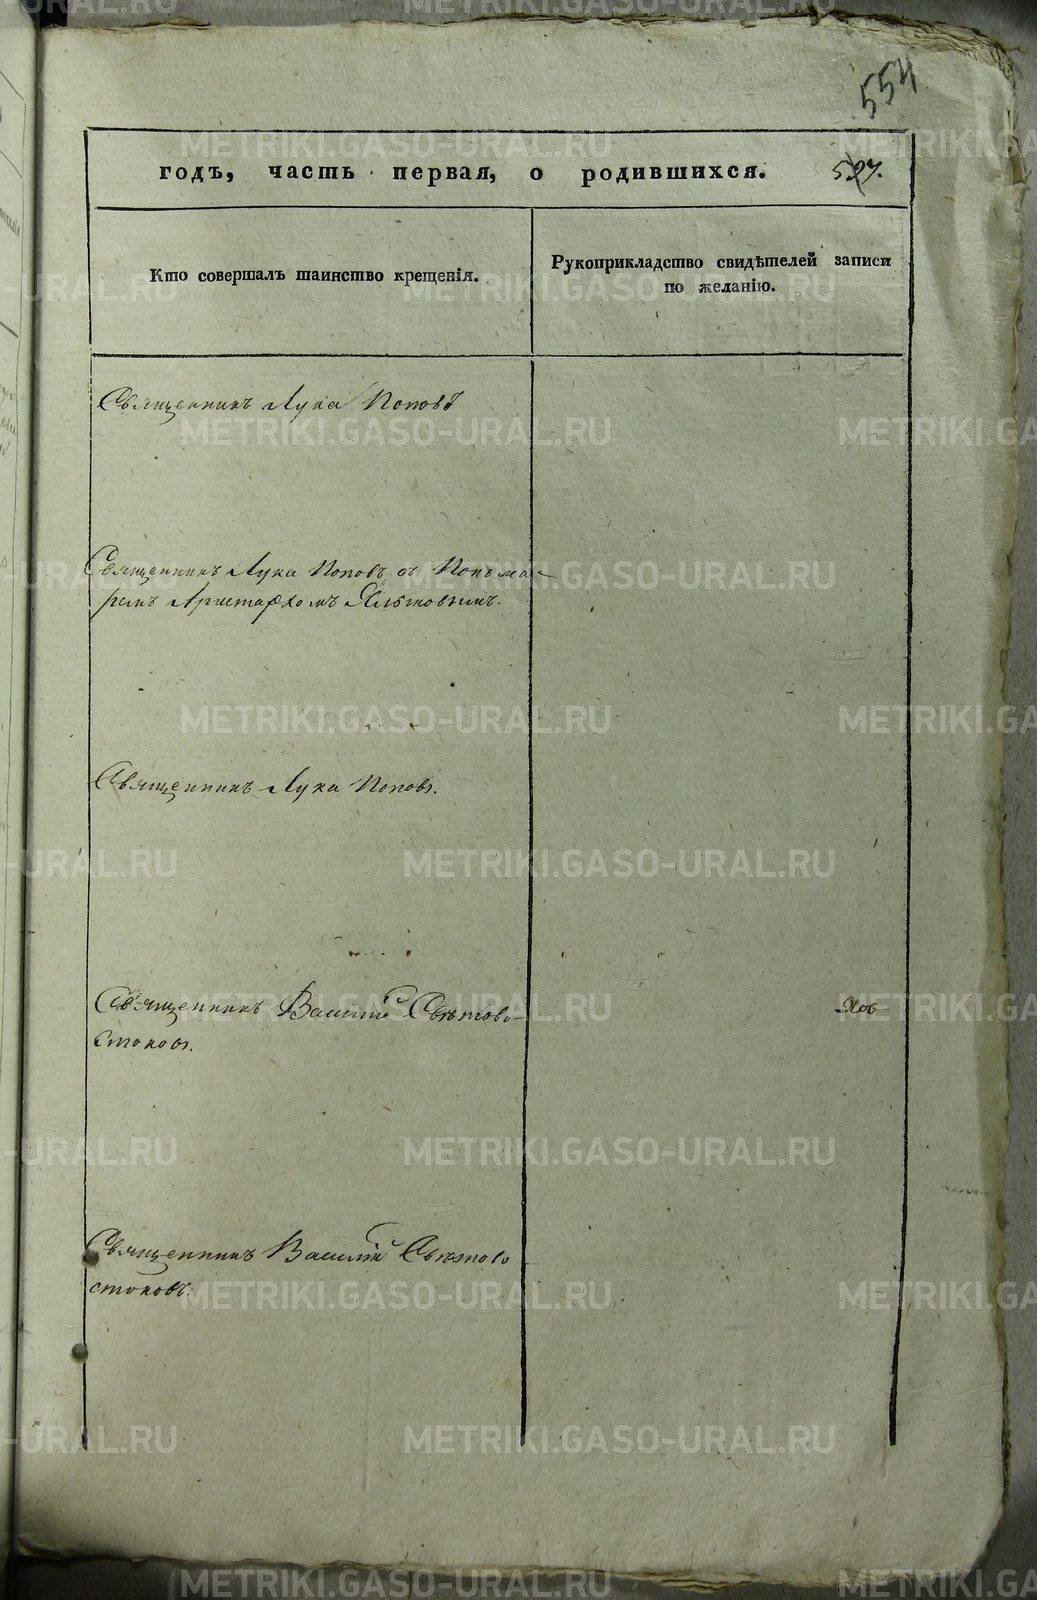 554
годъ, часть первая, о родившихся. 527.
Кто совершалъ таинство крещенія.
Рукоприкладство свидѣтелей записи
по желанію.
Священникъ Лука Поповъ
Священникъ Лука Поповъ съ
Аристархомъ
Священникъ Лука Поповъ.
Священникъ Василій Свѣтово-
стоковъ.
Священникъ Василій Свѣтово
стоковъ.
METRIKI.GASO-URAL.RU